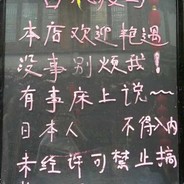 本店欢迎艳遇
没事别烦我!
有事床上说~~
日本人 不得入内
未经许可禁止搞